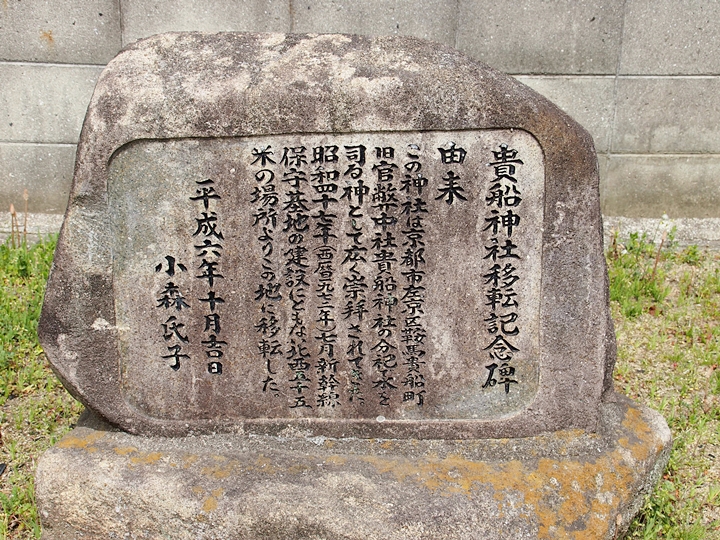 貴船神社移転記念碑
由来
この神社は京都市左京区鞍馬貴船町
旧官幣中社貴船神社の分祀水を
司る神として広く崇拝されてきた。
昭和四十七年(西暦一九七二年)七月新幹線
保守基地の建設にともない北西三十五
米の場所よりこの地に移転した。
平成六年十月吉日
小森氏子